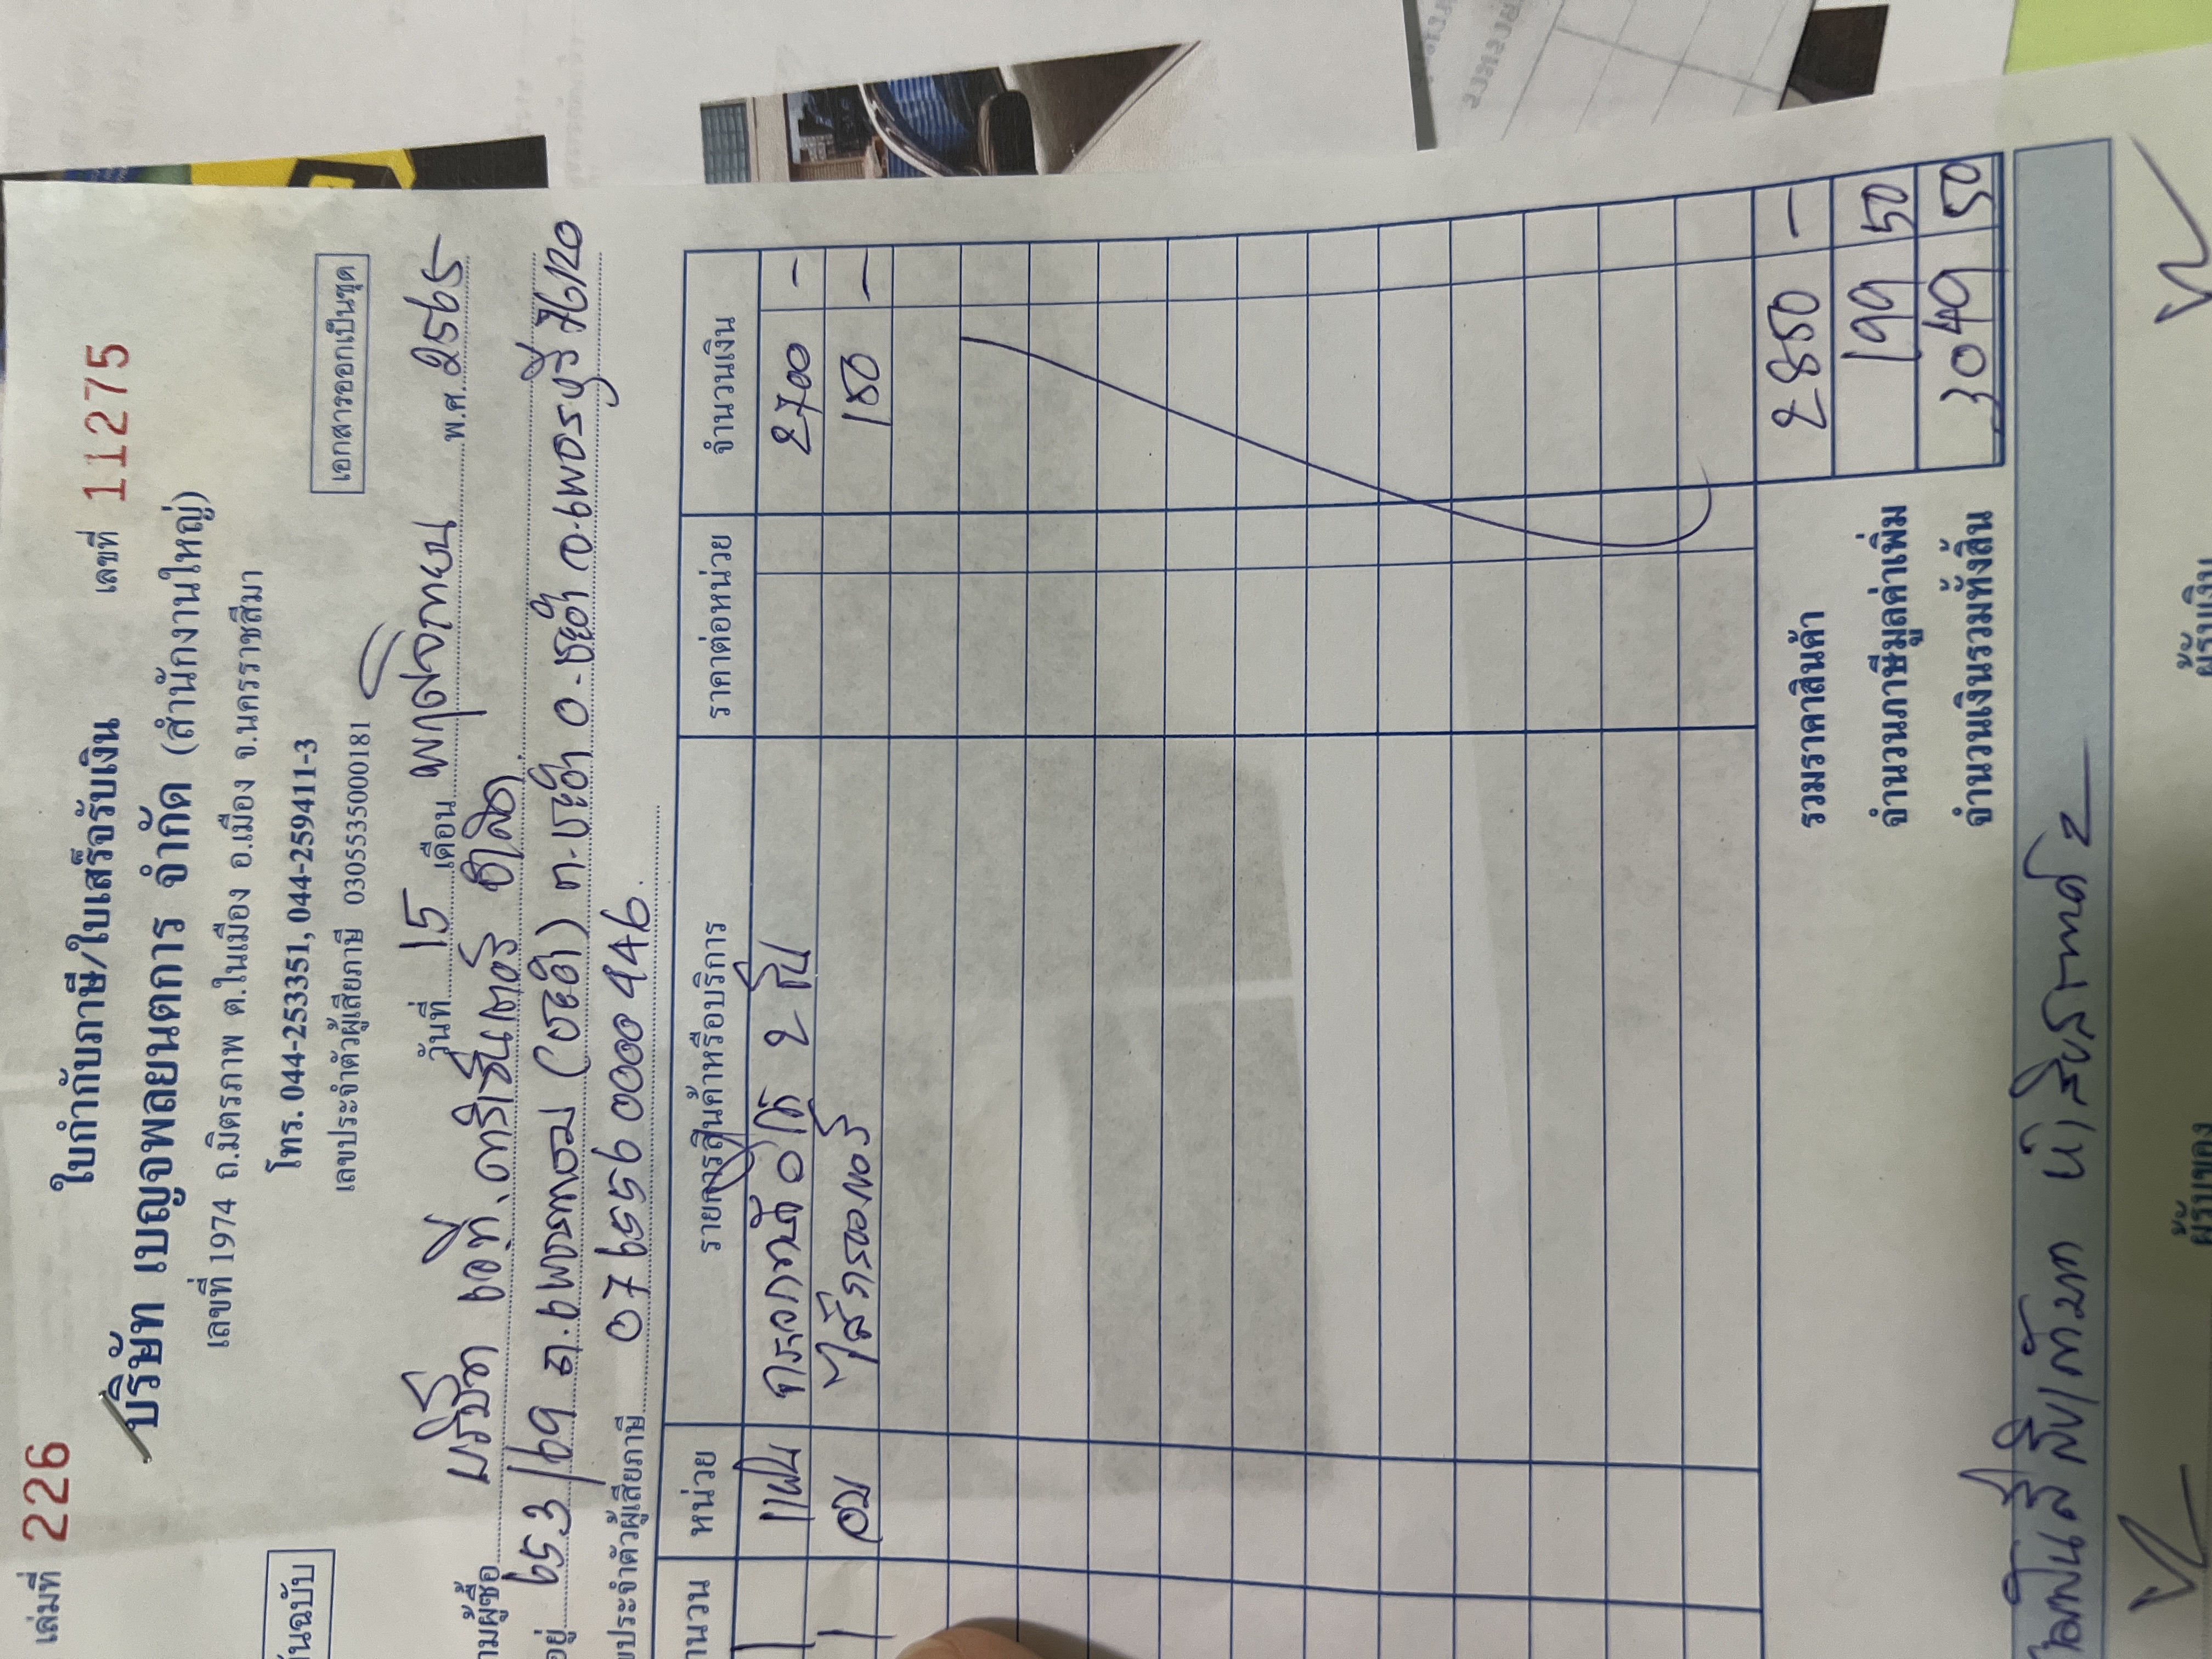 เล่มที่ 226
ใบกำกับภาษี/ใบเสร็จรับเงิน เลขที่ 11275
บริษัท เบญจพลยนตการ จำกัด (สำนักงานใหญ่)
เลขที่ 1974 ถ.มิตรภาพ ต.ในเมือง อ.เมือง จ.นครราชสีมา
โทร. 044-253351, 044-259411-3
เลขประจำตัวผู้เสียภาษี 0305535000181
เอกสารออกเป็นชุด
วันที่ 15 เดือน พฤศจิกายน พ.ศ. 2565
บริษัท เอที.
653/69 ถ.เพชรเกษม (ชะอำ) ต.ชะอำ อ.ชะอำ จ.เพชรบุรี 76120
0765560000446
หน่วย รายการสินค้าหรือบริการ ราคาต่อหน่วย จำนวนเงิน
1 แผ่น กระจก 2700 -
1 อบ ไส้กรองแอร์ 150 -
รวมราคาสินค้า 2850 -
จำนวนภาษีมูลค่าเพิ่ม 199 50
จำนวนเงินรวมทั้งสิ้น 3049 50
สามพันสี่สิบเก้าบาท ห้าสิบสตางค์
ผู้รับของ ผู้รับเงิน